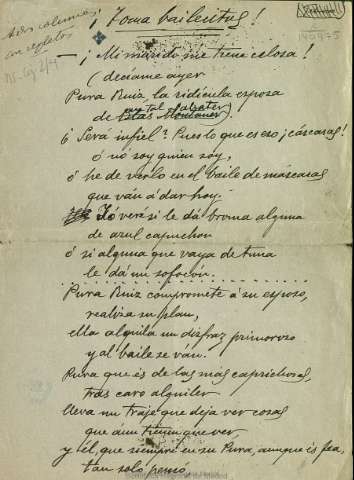 A dos columnas
con regletos
¡Toma bailecitos!
— ¡Mi marido me tiene celosa!
(decíame ayer
Pura Ruiz, la ridícula esposa
de
¿Será infiel? Pues lo que es eso ¡cáscaras!
ó nó soy quien soy,
ó he de verlo en el baile de máscaras
que ván á dar hoy.
Yó veré si le dá broma alguna
de azul capuchon
ó si alguna que vaya de tuna
le dá un sofocón.
Pura Ruiz compromete á su esposo,
realiza su plan,
ella alquila un disfraz primoroso
y al baile se ván.
Pura que és de las más caprichosas,
tras caro alquiler
lleva un traje que deja ver cosas
que áun tienen que ver
y él, que siempre en su Pura, aunque és fea,
tan solo pensó,